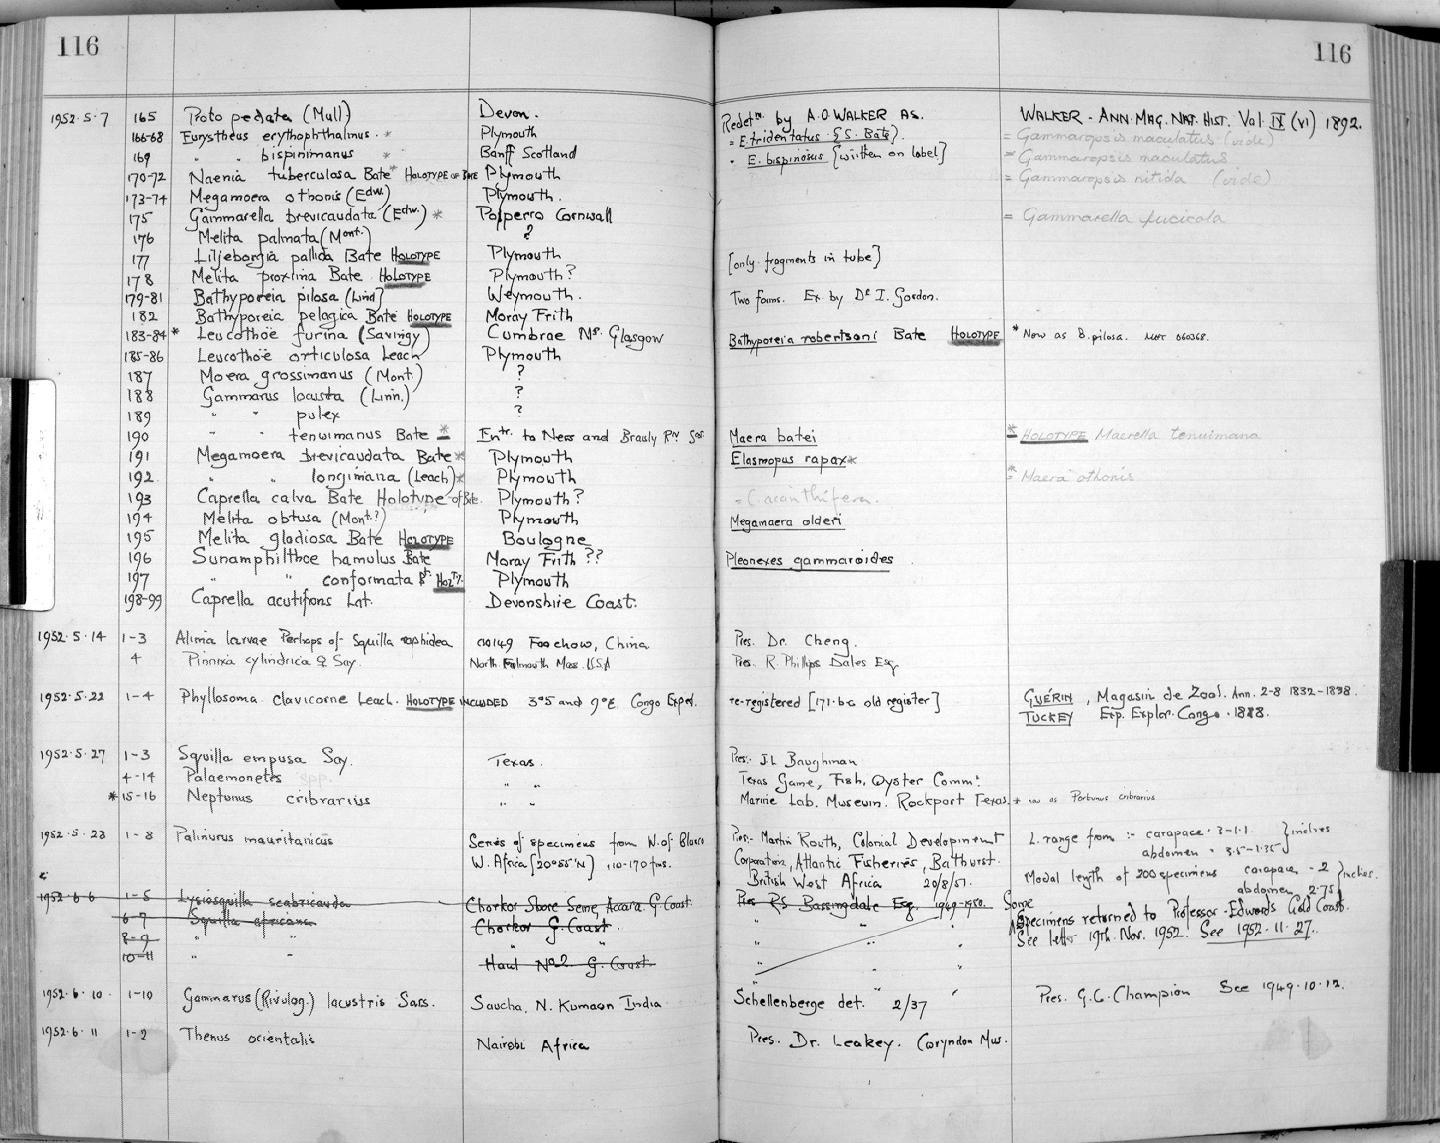 116 116
1952·5·7 165 Proto pedata (Mull) Devon. Redetn. by A.O WALKER AS. WALKER - ANN. MAG. NAT. HIST. Vol. IX (VI) 1892.
166-68 Eurystheus erythophthalmus * Plymouth = E. tridentatus {S. Bate}. = Gammaropsis maculatus (vide)
169 " " bispinimanus * Banff Scotland E. bispinosus [written on label] = Gammaropsis maculatus
170-72 Naenia tuberculosa Bate * HOLOTYPE OF BATE Plymouth = Gammaropsis nitida (vide)
173-74 Megamoera othonis (Edw.) Plymouth.
175 Gammarella brevicaudata (Edw.) * Polperro Cornwall = Gammarella fucicola
176 Melita palmata (Mont.) ?
177 Liljeborgia pallida Bate HOLOTYPE Plymouth [only fragments in tube]
178 Melita proxima Bate HOLOTYPE Plymouth?
179-81 Bathyporeia pilosa (Lind) Weymouth. Two forms. Ex. by Dr I. Gordon.
182 Bathyporeia pelagica Bate HOLOTYPE Moray Frith
183-84 * Leucothoë furina (Savingy) Cumbrae Nr. Glasgow Bathyporeia robertsoni Bate HOLOTYPE * Now as B. pilosa.
185-86 Leucothoë articulosa Leach Plymouth
187 Moera grossimanus (Mont.) ?
188 Gammarus locusta (Linn.) ?
189 " " pulex ?
190 " " tenuimanus Bate * Entr. to Ness and Maera batei * HOLOTYPE Maerella tenuimana
191 Megamoera brevicaudata Bate * Plymouth Elasmopus rapax *
192 " " longimana (Leach) * Plymouth * = Maera othonis
193 Caprella calva Bate Holotype of Bate. Plymouth? = C. acanthifera.
194 Melita obtusa (Mont.?) Plymouth Megamaera alderi
195 Melita gladiosa Bate HOLOTYPE Boulogne
196 Sunamphilthoe hamulus Bate Moray Frith ?? Pleonexes gammaroides
197 " " conformata Bt. HOLTY. Plymouth
198-99 Caprella acutifrons Lat. Devonshire Coast.
1952·5·14 1-3 Alima larvae Perhaps of Squilla raphidea Foochow, China Pres. Dr. Cheng.
4 Pinnixa cylindrica ♀ Say. North Falmouth Mass. U.S.A Pres. R. Phillips Dales Esq
1952·5·22 1-4 Phyllosoma clavicorne Leach. HOLOTYPE INCLUDED 3°5 and 9°E. Congo Exped. re-registered [171·b·c old register] GUÉRIN, Magasin de Zool. Ann. 2-8 1832-1838.
TUCKEY Exp. Explor. Congo. 1818.
1952·5·27 1-3 Squilla empusa Say. Texas. Pres. J.L Baughman
4-14 Palaemonetes spp. " " Texas Game, Fish, Oyster Comm:
* 15-16 Neptunus cribrarius " " Marine Lab. Museum. Rockport Texas. * now as Portunus cribrarius
1952·5·23 1-8 Palinurus mauritanicus Series of specimens from W. of Blanco Pres. Martin Routh, Colonial Development L. range from :- carapace · 3-1·1 } inches
W. Africa [20°55'N] , 110-170 fms. Corporation, Atlantic Fisheries, Bathurst. abdomen · 3·5-1·35
British West Africa 20/8/51. Modal length of 200 specimens carapace - 2 } inches.
abdomen 2·75
1952·6·6 1-5 Lysiosquilla scabricauda Chorkor Shore Seine, Accra. G. Coast. Pres R.S Bassingdale Esq. 1949-1950. Some
6-7 Squilla africana Chorkor G. Coast. Specimens returned to Professor Edwards Gold Coast.
8-9 " " See letter 19th. Nov. 1952. See 1952·11·27.
10-11 " " Haul No 2 G. Coast
1952·6·10 1-10 Gammarus (Rivulog.) lacustris Sars. Saucha, N. Kumaon India Schellenberge det. 2/37 Pres. G.C. Champion See 1949·10·12.
1952·6·11 1-2 Thenus orientalis Nairobi Africa Pres. Dr. Leakey. Coryndon Mus.